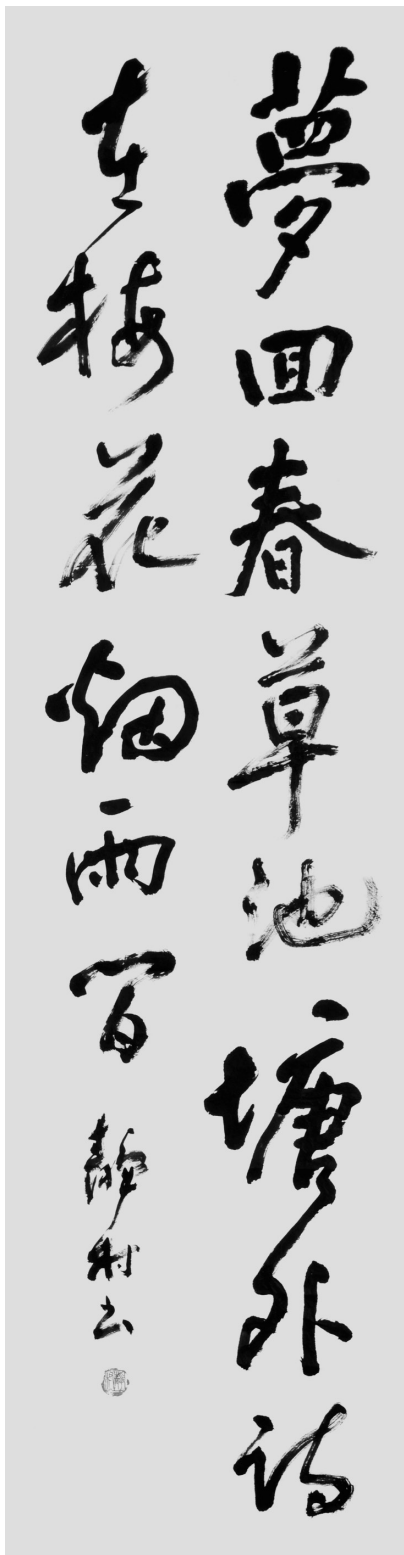 夢回春草池塘外詩
在梅花烟雨間
靜村书